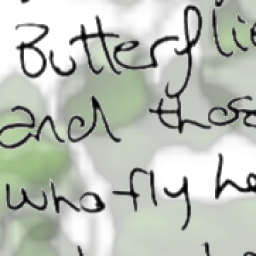 Butterflie
and those
who fly he